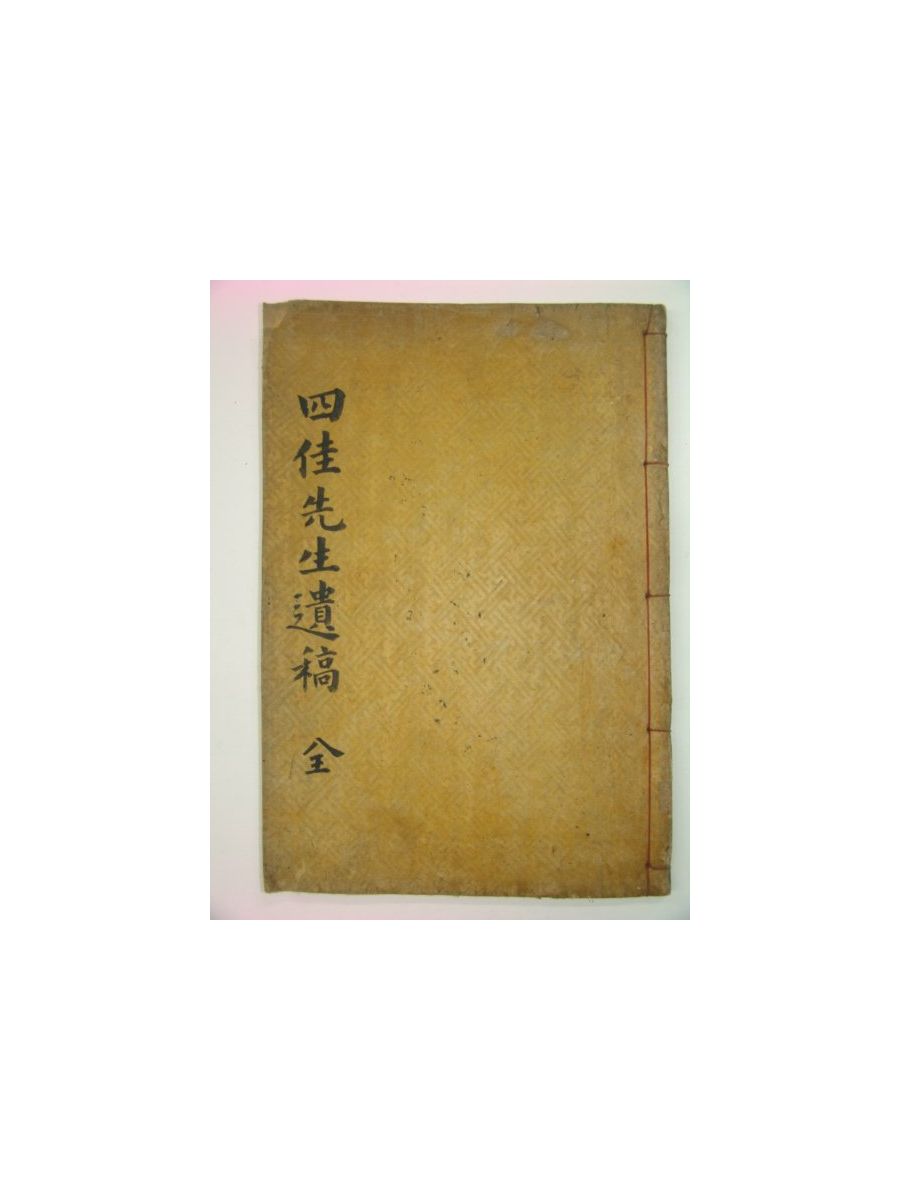 四佳先生遺稿 全